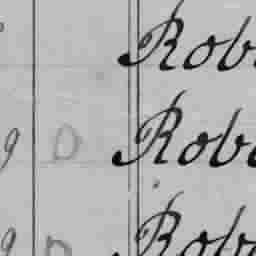 Rob
9 D Robe
9 D Robe